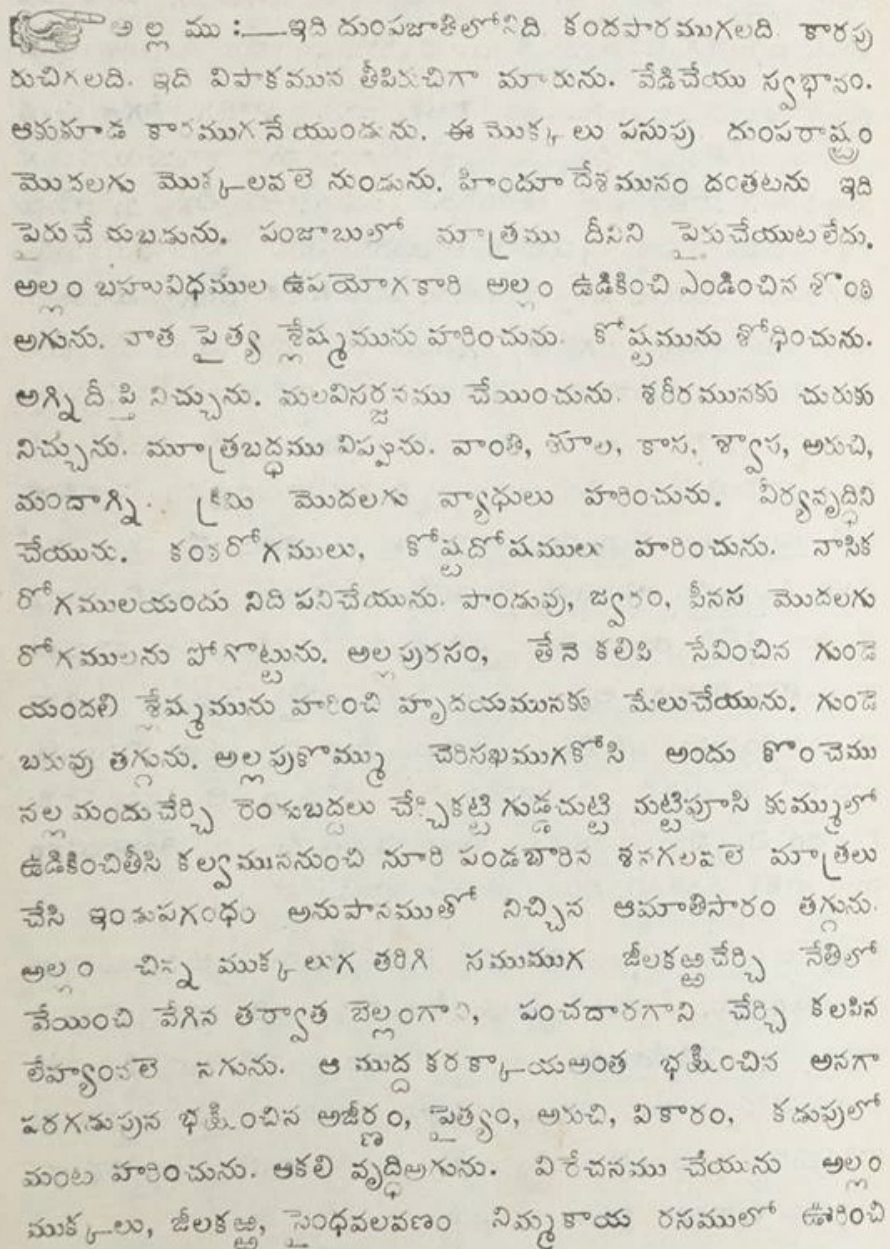 అల్లము :—ఇది దుంపజాతిలోనిది. కందసారముగలది. కారపు
రుచిగలది. ఇది విపాకమున తీపిరుచిగా మారును. వేడిచేయు స్వభావం.
ఆకుకూడ కారముగనేయుండును. ఈ మొక్కలు పసుపు దుంపరాష్ట్రం
మొదలగు మొక్కలవలె నుండును. హిందూదేశమునం దంతటను ఇది
పైరుచేయబడును. పంజాబులో మాత్రము దీనిని పైరుచేయుటలేదు.
అల్లం బహువిధముల ఉపయోగకారి అల్లం ఉడికించి ఎండించిన శొంఠి
అగును. వాత పైత్య శ్లేష్మమును హరించును. కోష్టమును శోధించును.
అగ్నిదీప్తి నిచ్చును. మలవిసర్జనము చేయించును. శరీరమునకు చురుకు
నిచ్చును. మూత్రబద్ధము విప్పును. వాంతి, శూల, కాస, శ్వాస, అరుచి,
మందాగ్ని. క్రిమి మొదలగు వ్యాధులు హరించును. వీర్యవృద్ధిని
చేయును. కంఠరోగములు, కోష్టదోషములు హరించును. నాసిక
రోగములయందు నిది పనిచేయును. పాండువు, జ్వరం, పీనస మొదలగు
రోగములను పోగొట్టును. అల్లపురసం, తేనె కలిపి సేవించిన గుండె
యందలి శ్లేష్మమును హరించి హృదయమునకు మేలుచేయును. గుండె
బరువు తగ్గును. అల్లపుకొమ్ము చెరిసఖముగకోసి అందు కొంచెము
నల్లమందుచేర్చి రెండుబద్దలు చేర్చికట్టి గుడ్డచుట్టి మట్టిపూసి కుమ్ములో
ఉడికించితీసి కల్వముననుంచి నూరి పండబారిన శనగలవలె మాత్రలు
చేసి ఇండుపగంధం అనుపానముతో నిచ్చిన ఆమాతిసారం తగ్గును.
అల్లం చిన్న ముక్కలుగ తరిగి సముముగ జీలకఱ్ఱచేర్చి నేతిలో
వేయించి వేగిన తర్వాత బెల్లంగాని, పంచదారగాని చేర్చి కలపిన
లేహ్యంవలె నగును. ఆ ముద్ద కరక్కాయఅంత భక్షించిన అనగా
పరగడుపున భక్షించిన అజీర్ణం, పైత్యం, అరుచి, వికారం, కడుపులో
మంట హరించును. ఆకలి వృద్ధిఅగును. విరేచనము చేయును అల్లం
ముక్కలు, జీలకఱ్ఱ, సైంధవలవణం నిమ్మకాయ రసములో ఊరించి